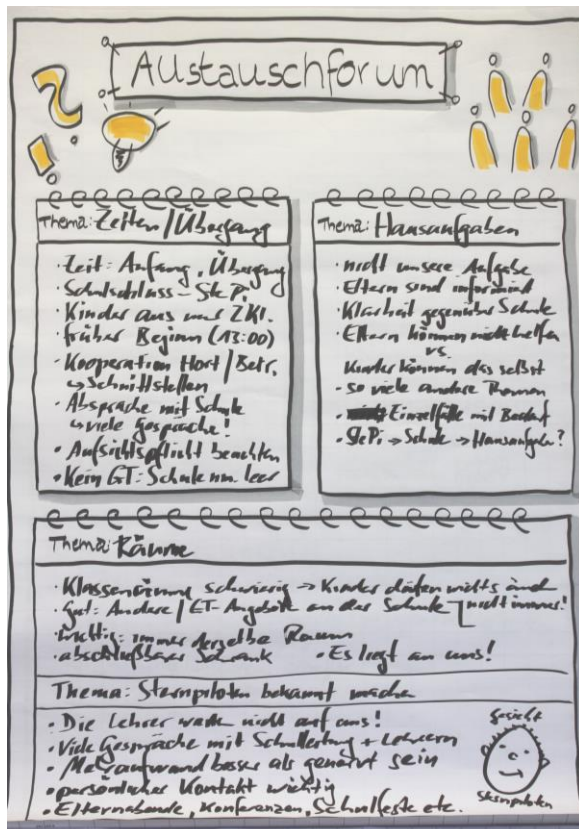 Austauschforum
Thema: Zeiten/Übergang
· Zeit: Anfang, Übergang
· Schulschluss – Ste.Pi.
· Kinder aus nur 2 Kl.
· früher Beginn (13:00)
· Kooperation Hort/Betr.
↳ Schnittstellen
· Absprache mit Schule
↳ viele Gespräche!
· Aufsichtspflicht beachten
· Kein GT: Schule nm. leer
Thema: Hausaufgaben
· nicht unsere Aufgabe
· Eltern sind informiert
· Klarheit gegenüber Schule
· Eltern können nicht helfen
vs.
Kinder können das selbst
· so viele andere Themen
· Einzelfälle mit Bedarf
· StePi → Schule → Hausaufgabe?
Thema: Räume
· Klassenräume schwierig → Kinder dürfen nichts änd
· Gut: Andere / GT-Angebote an der Schule nicht immer!
· Wichtig: immer derselbe Raum
· abschließbarer Schrank · Es liegt an uns!
Thema: Sternpiloten bekannt machen
· Die Lehrer warten nicht auf uns!
· Viele Gespräche mit Schulleitung + Lehrern
· Mehraufwand besser als genervt sein
· persönlicher Kontakt wichtig
· Elternabende, Konferenzen, Schulfeste etc.
Gesicht
Sternpiloten